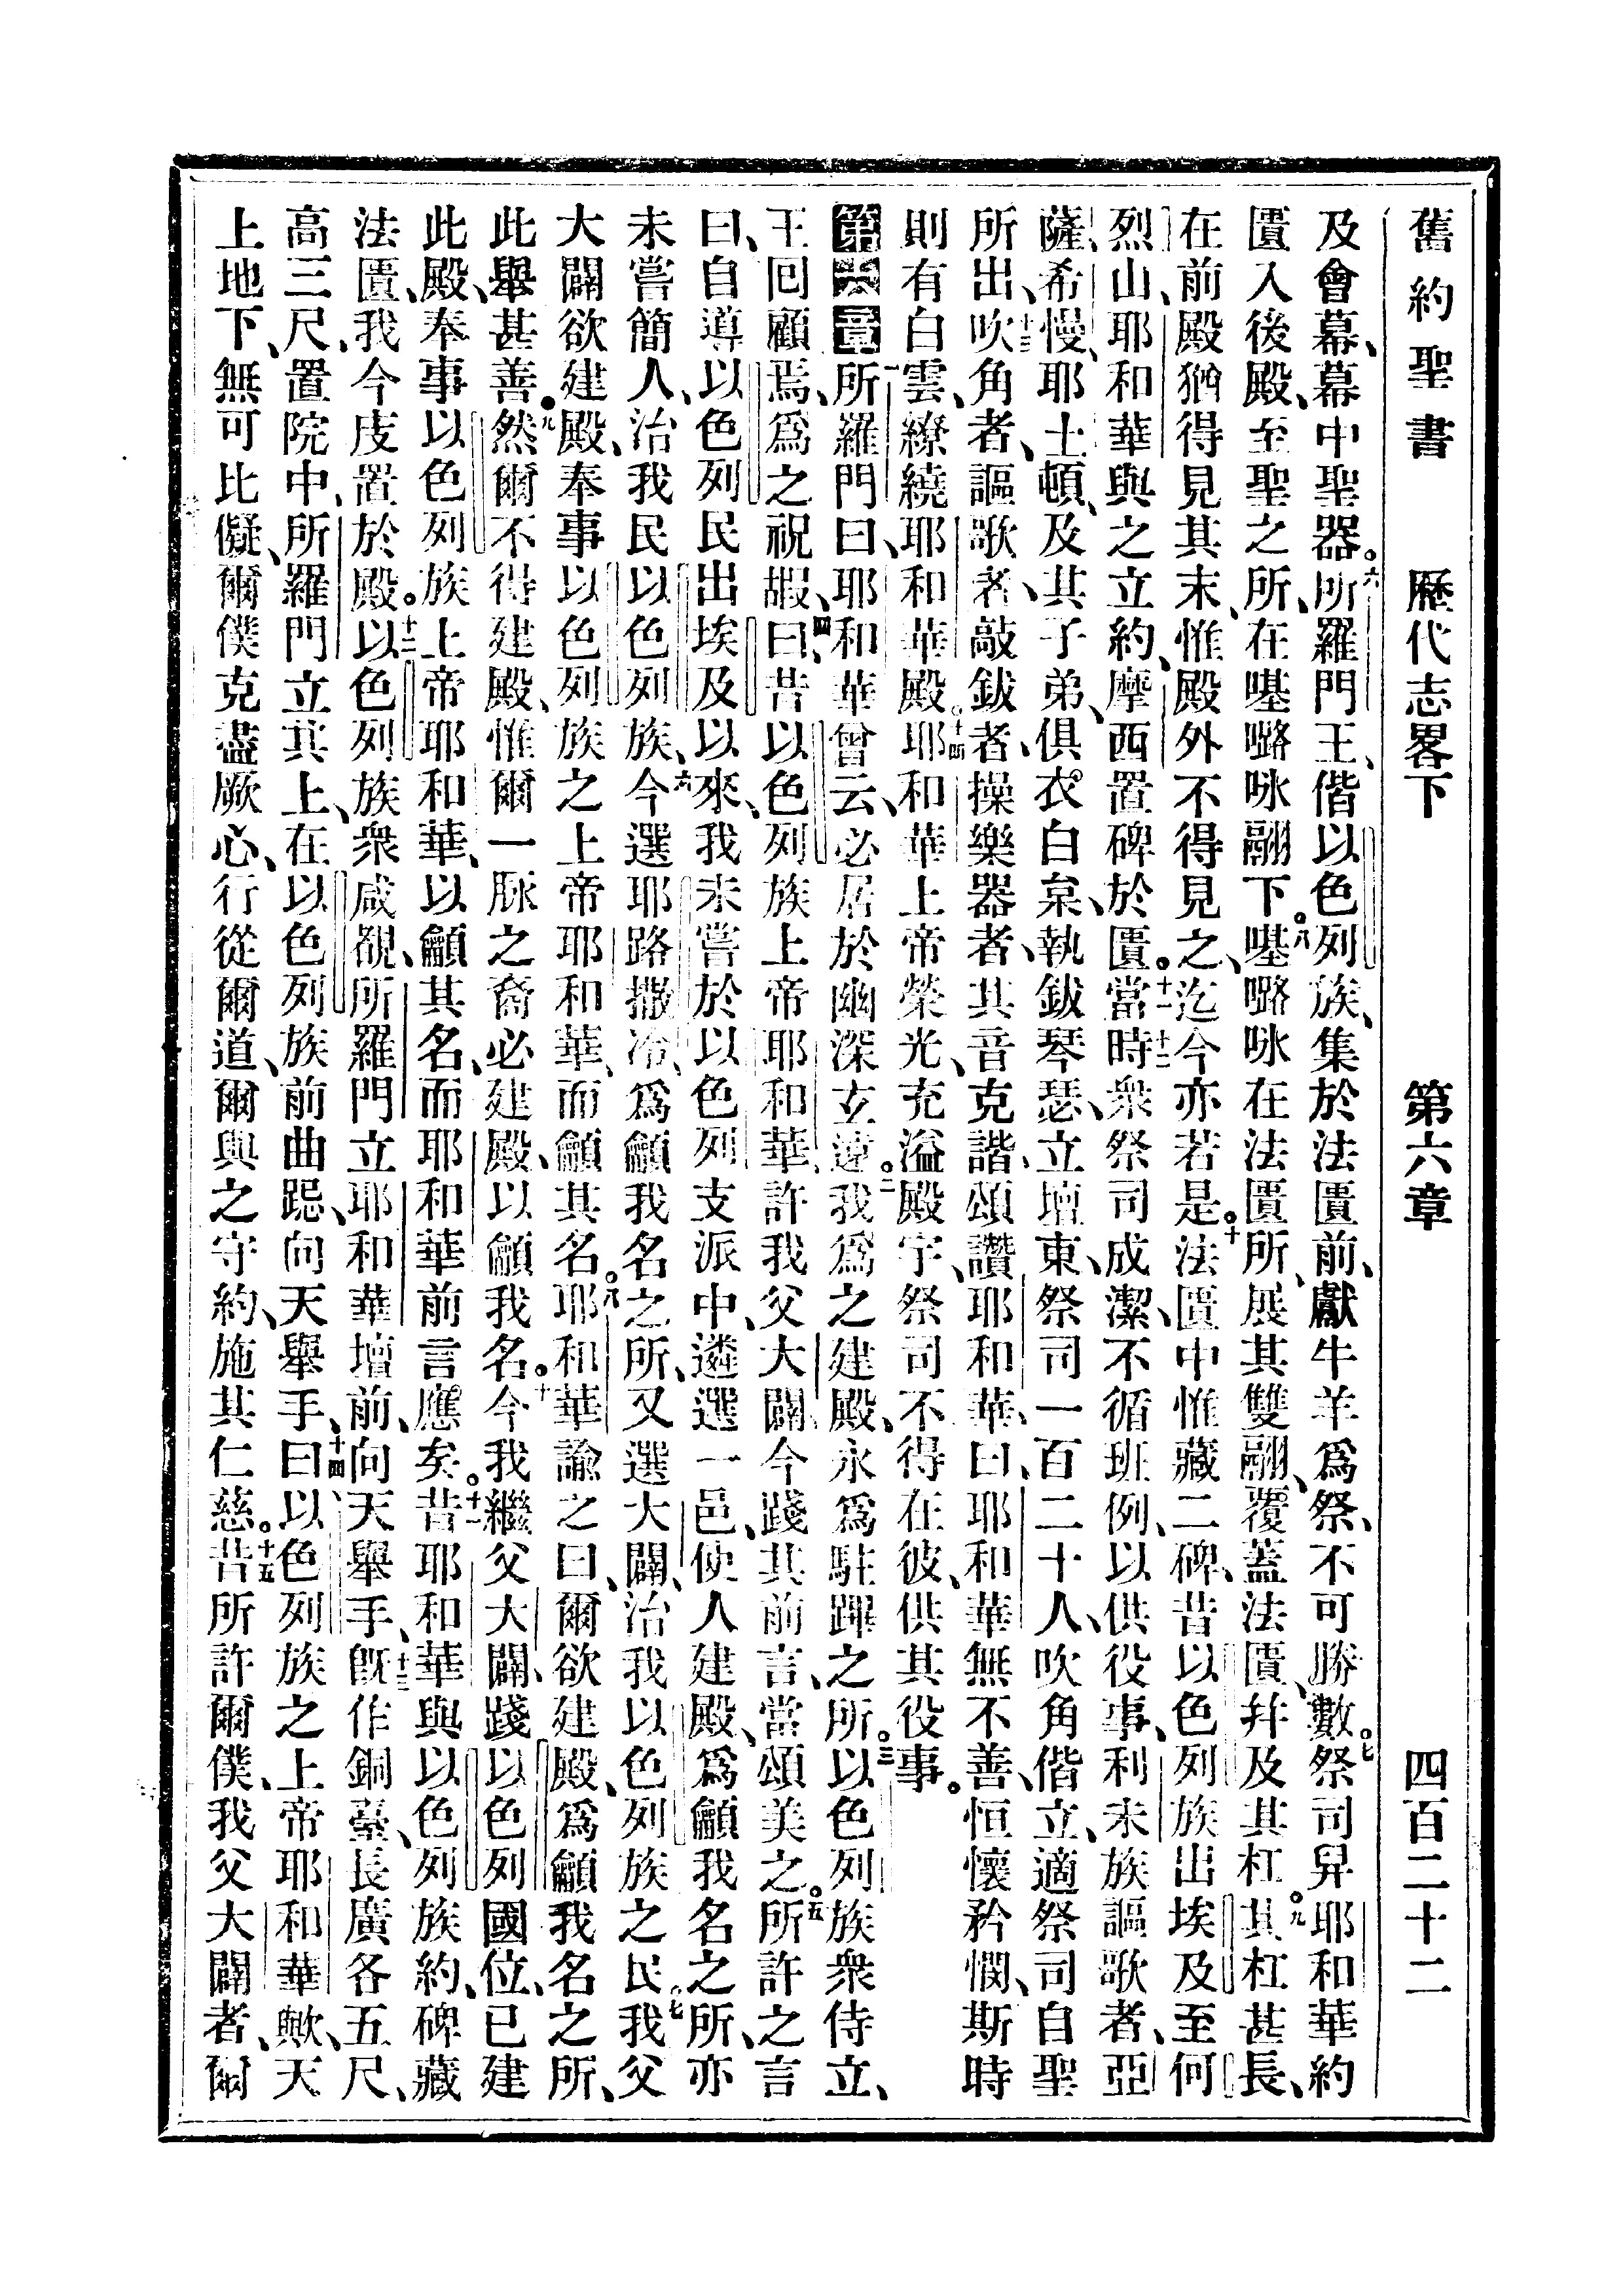 舊約聖書 歷代志畧下 第六章 四百二十二
及會幕、幕中聖器。六所羅門王、偕以色列族、集於法匱前、獻牛羊爲祭、不可勝數。七祭司舁耶和華約
匱入後殿、至聖之所、在𠼻嚕咏翮下。八𠼻嚕咏在法匱所、展其雙翮、覆蓋法匱、幷及其杠。九其杠甚長、
在前殿猶得見其末、惟殿外不得見之、迄今亦若是。十法匱中惟藏二碑、昔以色列族出埃及至何
烈山、耶和華與之立約、摩西置碑於匱。十一當時十二衆祭司成潔、不循班例、以供役事、利未族謳歌者、亞
薩、希慢、耶土頓、及其子弟、俱衣白枲、執鈸琴瑟、立壇東、祭司一百二十人、吹角偕立、適祭司自聖
所出、十三吹角者、謳歌者、敲鈸者、操樂器者、其音克諧、頌讚耶和華、曰、耶和華無不善、恒懷矜憫、斯時
則有白雲、繚繞耶和華殿。十四耶和華上帝榮光、充溢殿宇、祭司不得在彼、供其役事。
第六章一所羅門曰、耶和華曾云、必居於幽深玄遠。二我爲之建殿、永爲駐蹕之所。三以色列族衆侍立、
王回顧焉、爲之祝嘏、四曰、昔以色列族上帝耶和華、許我父大闢、今踐其前言、當頌美之。五所許之言
曰、自導以色列民出埃及以來、我未嘗於以色列支派中、遴選一邑、使人建殿、爲龥我名之所、亦
未嘗簡人、治我民以色列族、六今選耶路撒冷、爲龥我名之所、又選大闢、治我以色列族之民。七我父
大闢欲建殿、奉事以色列族之上帝耶和華、而龥其名。八耶和華諭之曰、爾欲建殿、爲龥我名之所、
此舉甚善。九然爾不得建殿、惟爾一脈之裔必建殿、以龥我名。十今我繼父大闢、踐以色列國位、已建
此殿、奉事以色列族上帝耶和華、以龥其名、而耶和華前言應矣。十一昔耶和華與以色列族約、碑藏
法匱、我今庋置於殿。十二以色列族衆咸覩、所羅門立耶和華壇前、向天舉手、十三旣作銅臺、長廣各五尺、
高三尺、置院中、所羅門立其上、在以色列族前曲跽、向天舉手、十四曰、以色列族之上帝耶和華歟、天
上地下、無可比儗、爾僕克盡厥心、行從爾道、爾與之守約、施其仁慈。十五昔所許爾僕、我父大闢者、爾